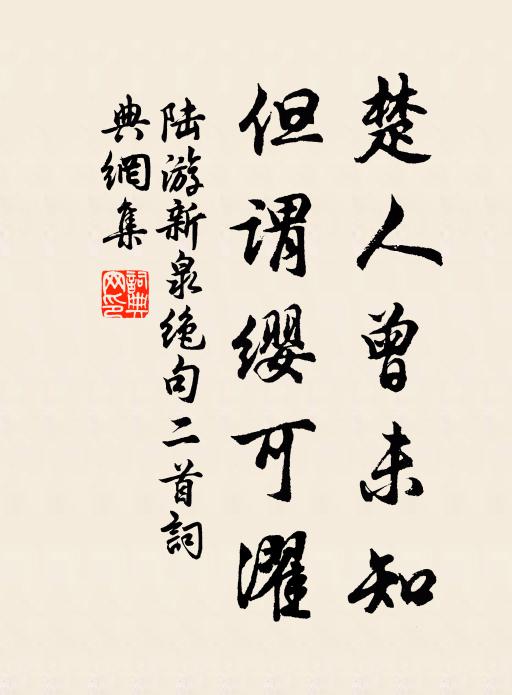 楚人曾未知
但谓缨可濯
陆游新泉绝句二首詞
典網集
詞典
网印